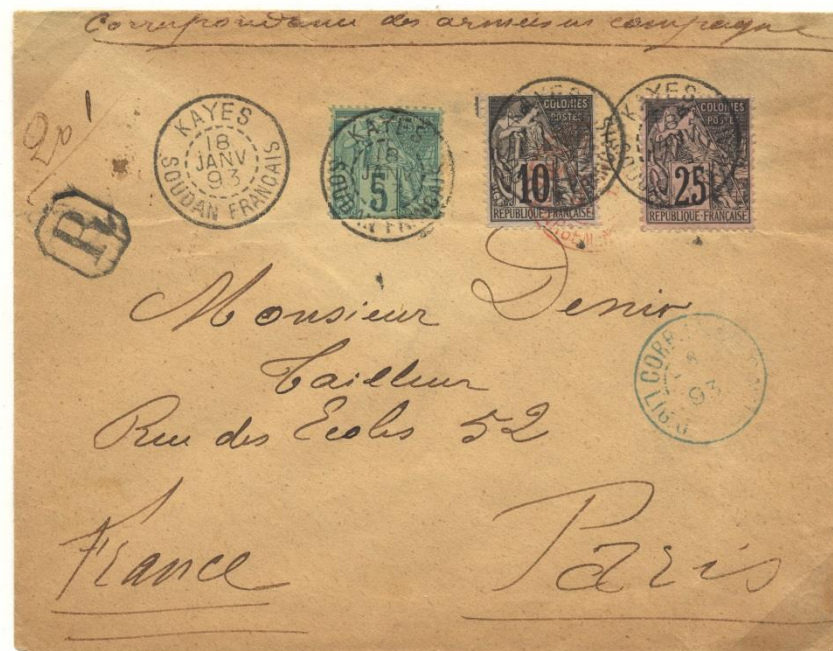 Correspondance des armées en campagne
KAYES
18
JANV
93
SOUDAN FRANCAIS
R
KAYES
18
JANV
SOUDAN FRANCAIS
5
KAYES
COLONIES
POSTES
10
REPUBLIQUE FRANÇAISE
KAYES
COLONIES
POSTES
25
REPUBLIQUE FRANÇAISE
Monsieur Denir
Tailleur
Rue des Ecoles 52
LIG.
CORR.
93
France
Paris